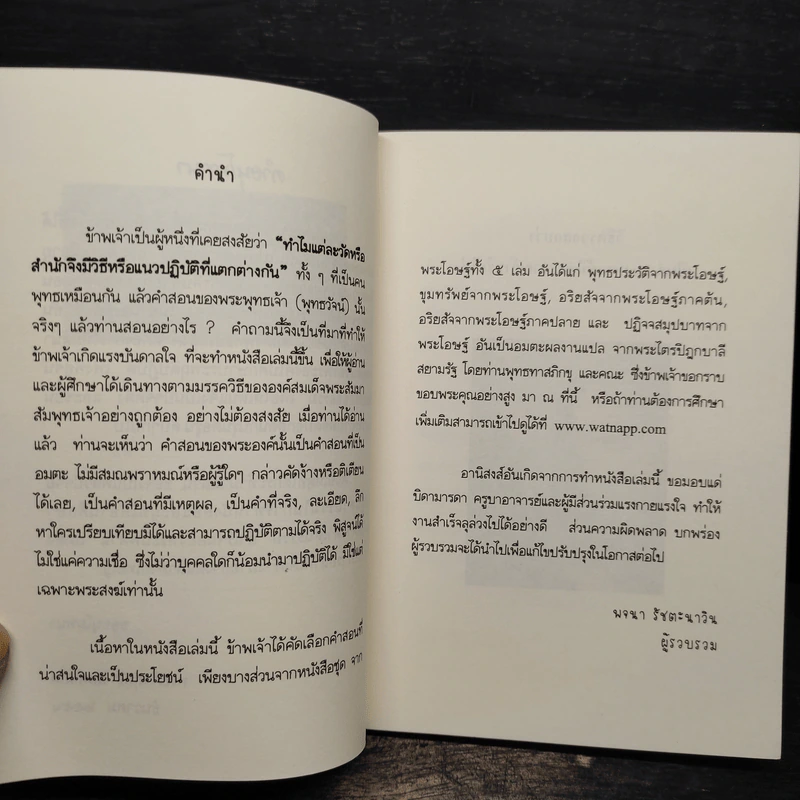 คำนำ
ข้าพเจ้าเป็นผู้หนึ่งที่เคยสงสัยว่า "ทำไมแต่ละวัดหรือ
สำนักจึงมีวิธีหรือแนวปฏิบัติที่แตกต่างกัน" ทั้ง ๆ ที่เป็นคน
พุทธเหมือนกัน แล้วคำสอนของพระพุทธเจ้า (พุทธวัจน์) นั้น
จริงๆ แล้วท่านสอนอย่างไร ? คำถามนี้จึงเป็นที่มาที่ทำให้
ข้าพเจ้าเกิดแรงบันดาลใจ ที่จะทำหนังสือเล่มนี้ขึ้น เพื่อให้ผู้อ่าน
และผู้ศึกษาได้เดินทางตามมรรควิธีขององค์สมเด็จพระสัมมา
สัมพุทธเจ้าอย่างถูกต้อง อย่างไม่ต้องสงสัย เมื่อท่านได้อ่าน
แล้ว ท่านจะเห็นว่า คำสอนของพระองค์นั้นเป็นคำสอนที่เป็น
อมตะ ไม่มีสมณพราหมณ์หรือผู้รู้ใดๆ กล่าวคัดง้างหรือติเตียน
ได้เลย, เป็นคำสอนที่มีเหตุผล, เป็นคำที่จริง, ละเอียด, ลึก
หาใครเปรียบเทียบมิได้และสามารถปฏิบัติตามได้จริง พิสูจน์ได้
ไม่ใช่แค่ความเชื่อ ซึ่งไม่ว่าบุคคลใดก็น้อมนำมาปฏิบัติได้ มิใช่แต่
เฉพาะพระสงฆ์เท่านั้น
เนื้อหาในหนังสือเล่มนี้ ข้าพเจ้าได้คัดเลือกคำสอนที่
น่าสนใจและเป็นประโยชน์ เพียงบางส่วนจากหนังสือชุด จาก
พระโอษฐ์ทั้ง ๕ เล่ม อันได้แก่ พุทธประวัติจากพระโอษฐ์,
ขุมทรัพย์จากพระโอษฐ์, อริยสัจจากพระโอษฐ์ภาคต้น,
อริยสัจจากพระโอษฐ์ภาคปลาย และ ปฏิจจสมุปบาทจาก
พระโอษฐ์ อันเป็นอมตะผลงานแปล จากพระไตรปิฎกบาลี
สยามรัฐ โดยท่านพุทธทาสภิกขุ และคณะ ซึ่งข้าพเจ้าขอกราบ
ขอบพระคุณอย่างสูง มา ณ ที่นี้ หรือถ้าท่านต้องการศึกษา
เพิ่มเติมสามารถเข้าไปดูได้ที่ www.watnapp.com
อานิสงส์อันเกิดจากการทำหนังสือเล่มนี้ ขอมอบแด่
บิดามารดา ครูบาอาจารย์และผู้มีส่วนร่วมแรงกายแรงใจ ทำให้
งานสำเร็จลุล่วงไปได้อย่างดี ส่วนความผิดพลาด บกพร่อง
ผู้รวบรวมจะได้นำไปเพื่อแก้ไขปรับปรุงในโอกาสต่อไป
พจนา รัชตะนาวิน
ผู้รวบรวม